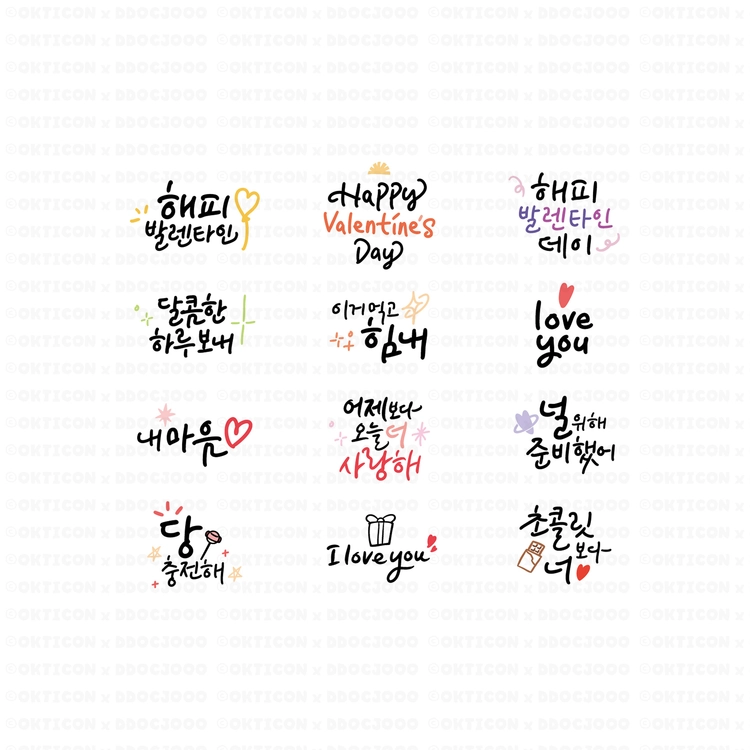 해피
발렌타인
Happy
Valentine's
Day
해피
발렌타인
데이
달콤한
하루 보내
이거 먹고
힘내
love
you
내 마음
어제보다
오늘 더
사랑해
널 위해
준비했어
당
충전해
I love you
초콜릿
보다
너